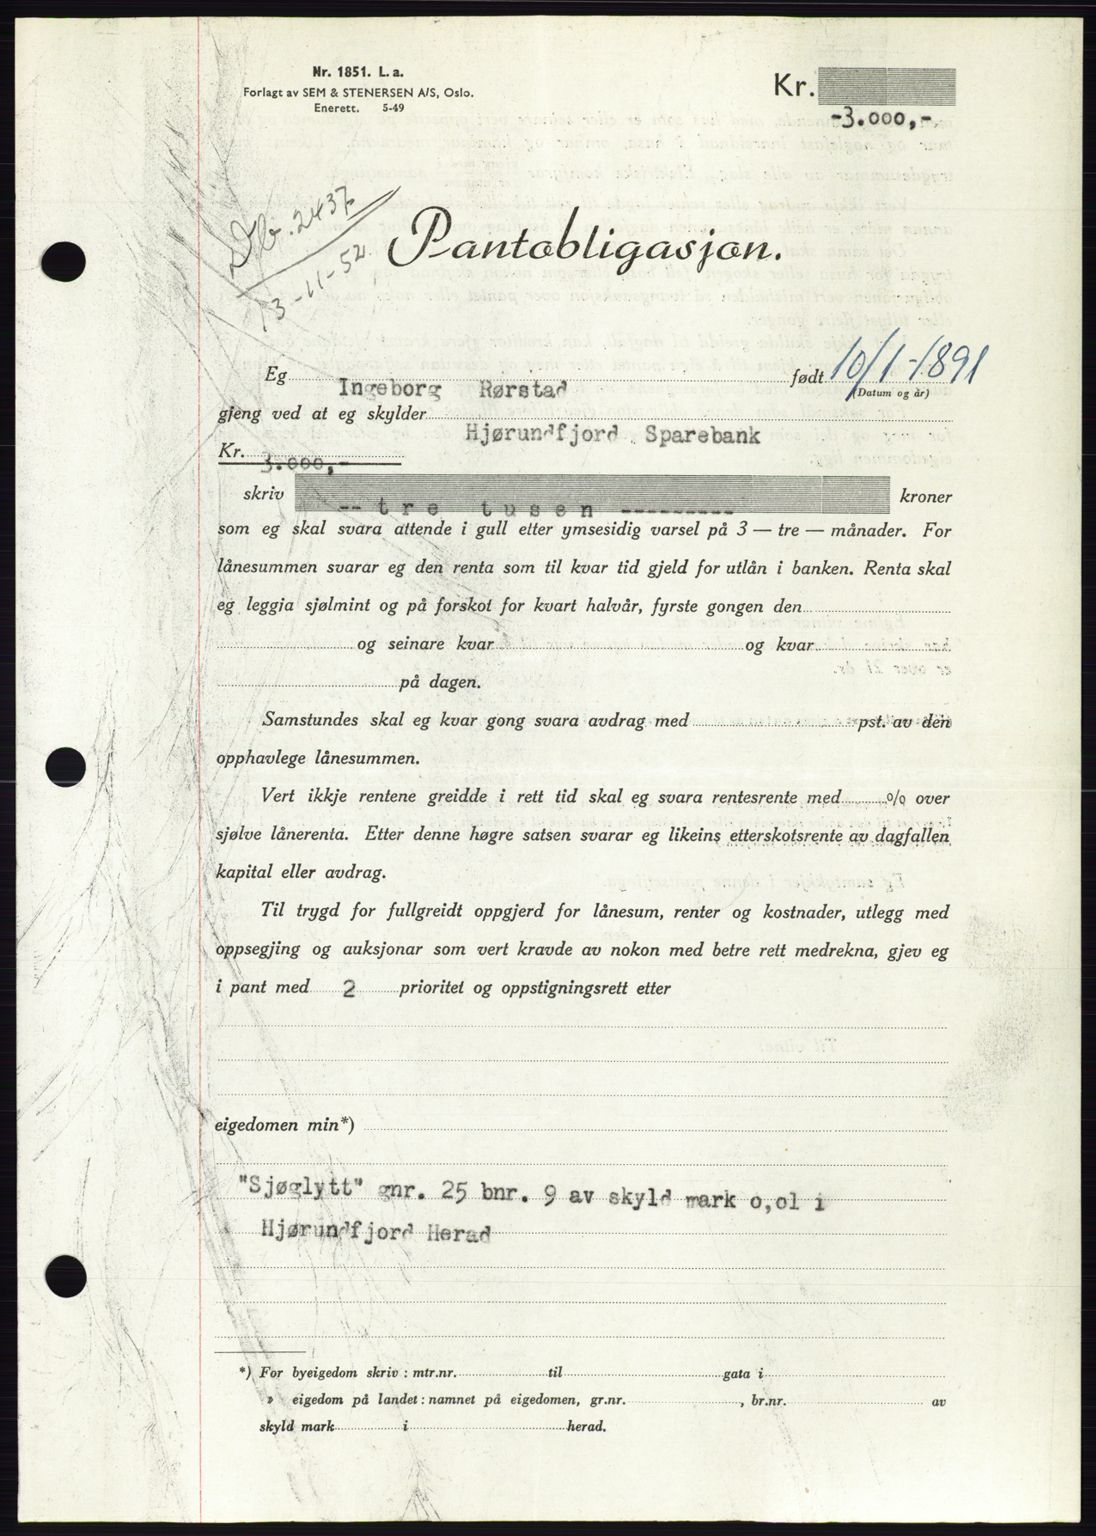 Nr. 1851. L. a.
Forlagt av SEM & STENERSEN A/S, Oslo.
Enerett. 5-49
Kr.
-3.000,-
Dgb. 2437
13-11-52
Pantobligasjon.
Eg Ingeborg Rørstad født 10/1-1891
(Datum og år)
gjeng ved at eg skylder
Hjørundfjord Sparebank
Kr. 3.000,-
skriv -- tre tusen --------- kroner
som eg skal svara attende i gull etter ymsesidig varsel på 3 — tre — månader. For
lånesummen svarar eg den renta som til kvar tid gjeld for utlån i banken. Renta skal
eg leggja sjølmint og på forskot for kvart halvår, fyrste gongen den
og seinare kvar og kvar
på dagen.
Samstundes skal eg kvar gong svara avdrag med pst. av den
opphavlege lånesummen.
Vert ikkje rentene greidde i rett tid skal eg svara rentesrente med % over
sjølve lånerenta. Etter denne høgre satsen svarar eg likeins etterskotsrente av dagfallen
kapital eller avdrag.
Til trygd for fullgreidt oppgjerd for lånesum, renter og kostnader, utlegg med
oppsegjing og auksjonar som vert kravde av nokon med betre rett medrekna, gjev eg
i pant med 2 prioritet og oppstigningsrett etter
eigedomen min*)
"Sjøglytt" gnr. 25 bnr. 9 av skyld mark o,ol i
Hjørundfjord Herad
*) For byeigedom skriv: mtr.nr. til gata i
» eigedom på landet: namnet på eigedomen, gr.nr. , br.nr. av
skyld mark i herad.